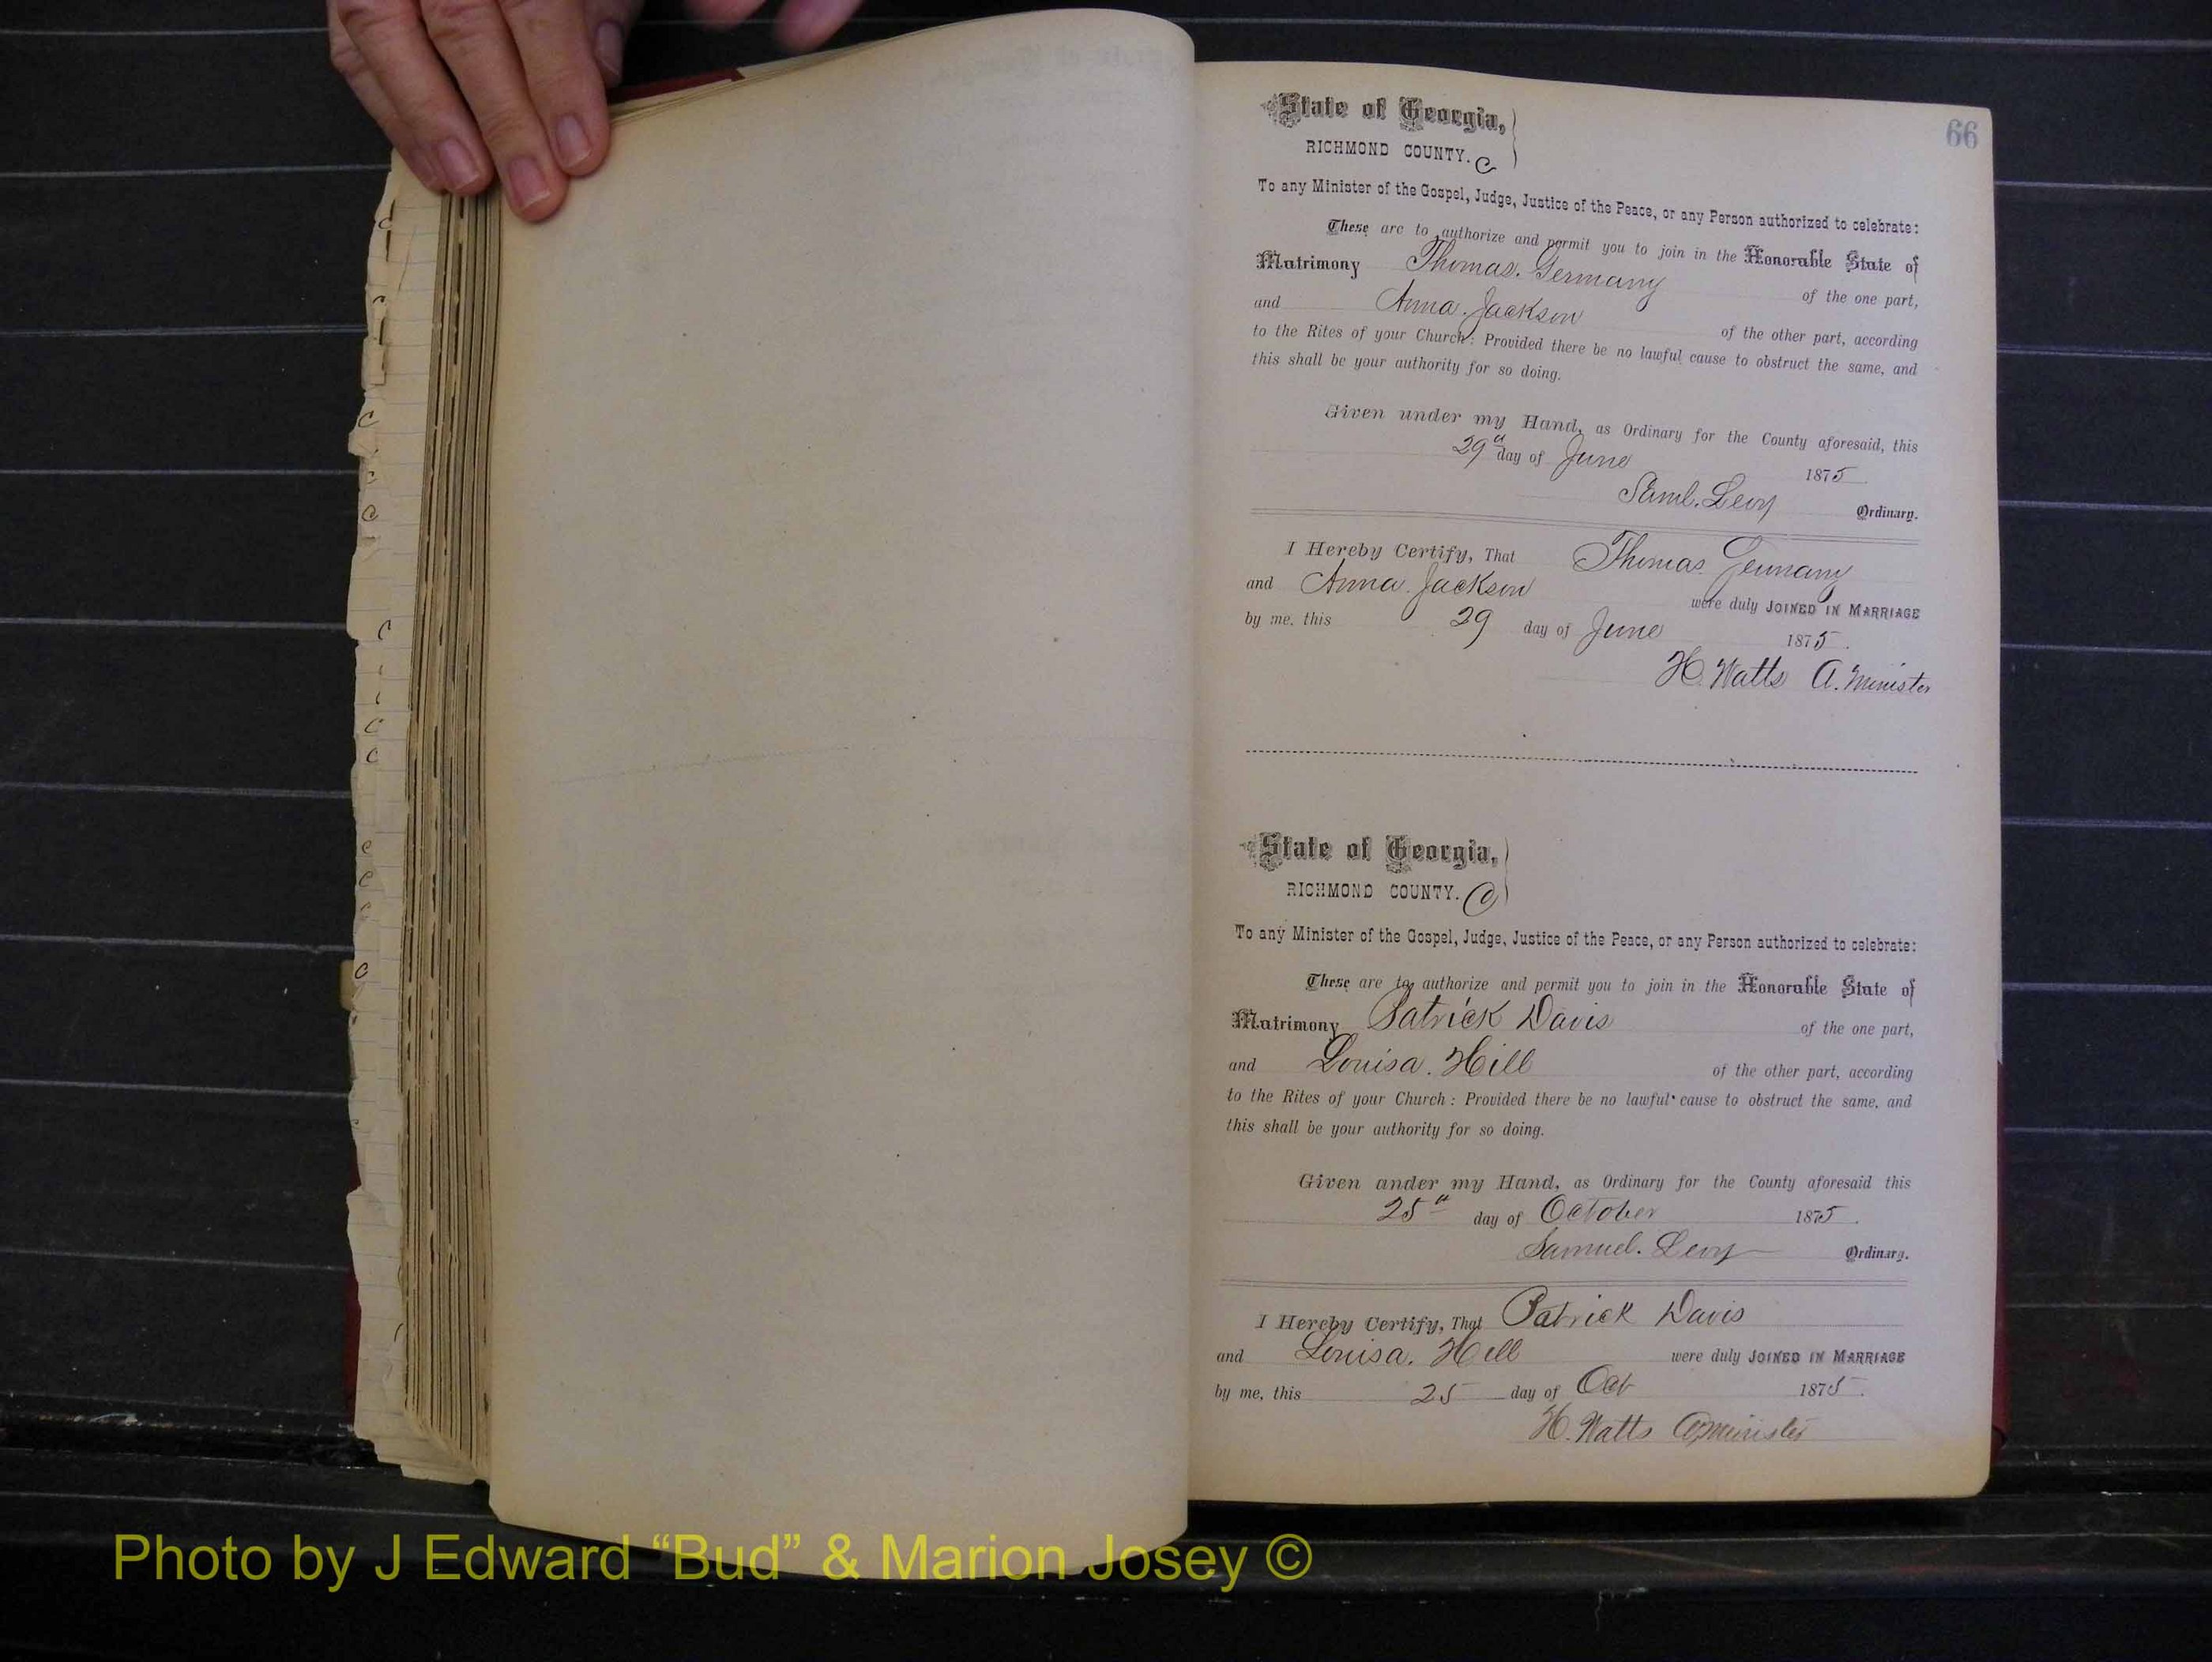 66
State of Georgia,
RICHMOND COUNTY. C
To any Minister of the Gospel, Judge, Justice of the Peace, or any Person authorized to celebrate:
These are to authorize and permit you to join in the Honorable State of
Matrimony Thomas. Germany of the one part,
and Anna. Jackson of the other part, according
to the Rites of your Church: Provided there be no lawful cause to obstruct the same, and
this shall be your authority for so doing.
Given under my Hand, as Ordinary for the County aforesaid, this
29 day of June 1875
Saml. Levy Ordinary.
I Hereby Certify, That Thomas Germany
and Anna Jackson were duly JOINED IN MARRIAGE
by me, this 29 day of June 1875.
H. Watts A. Minister
State of Georgia,
RICHMOND COUNTY. C
To any Minister of the Gospel, Judge, Justice of the Peace, or any Person authorized to celebrate:
These are to authorize and permit you to join in the Honorable State of
Matrimony Patrick Davis of the one part,
and Louisa. Hill of the other part, according
to the Rites of your Church: Provided there be no lawful cause to obstruct the same, and
this shall be your authority for so doing.
Given under my Hand, as Ordinary for the County aforesaid this
25 day of October 1875.
Samuel. Levy Ordinary.
I Hereby Certify, That Patrick Davis
and Louisa. Hill were duly JOINED IN MARRIAGE
by me, this 25 day of Oct 1875.
H. Watts A minister
Photo by J Edward “Bud” & Marion Josey ©